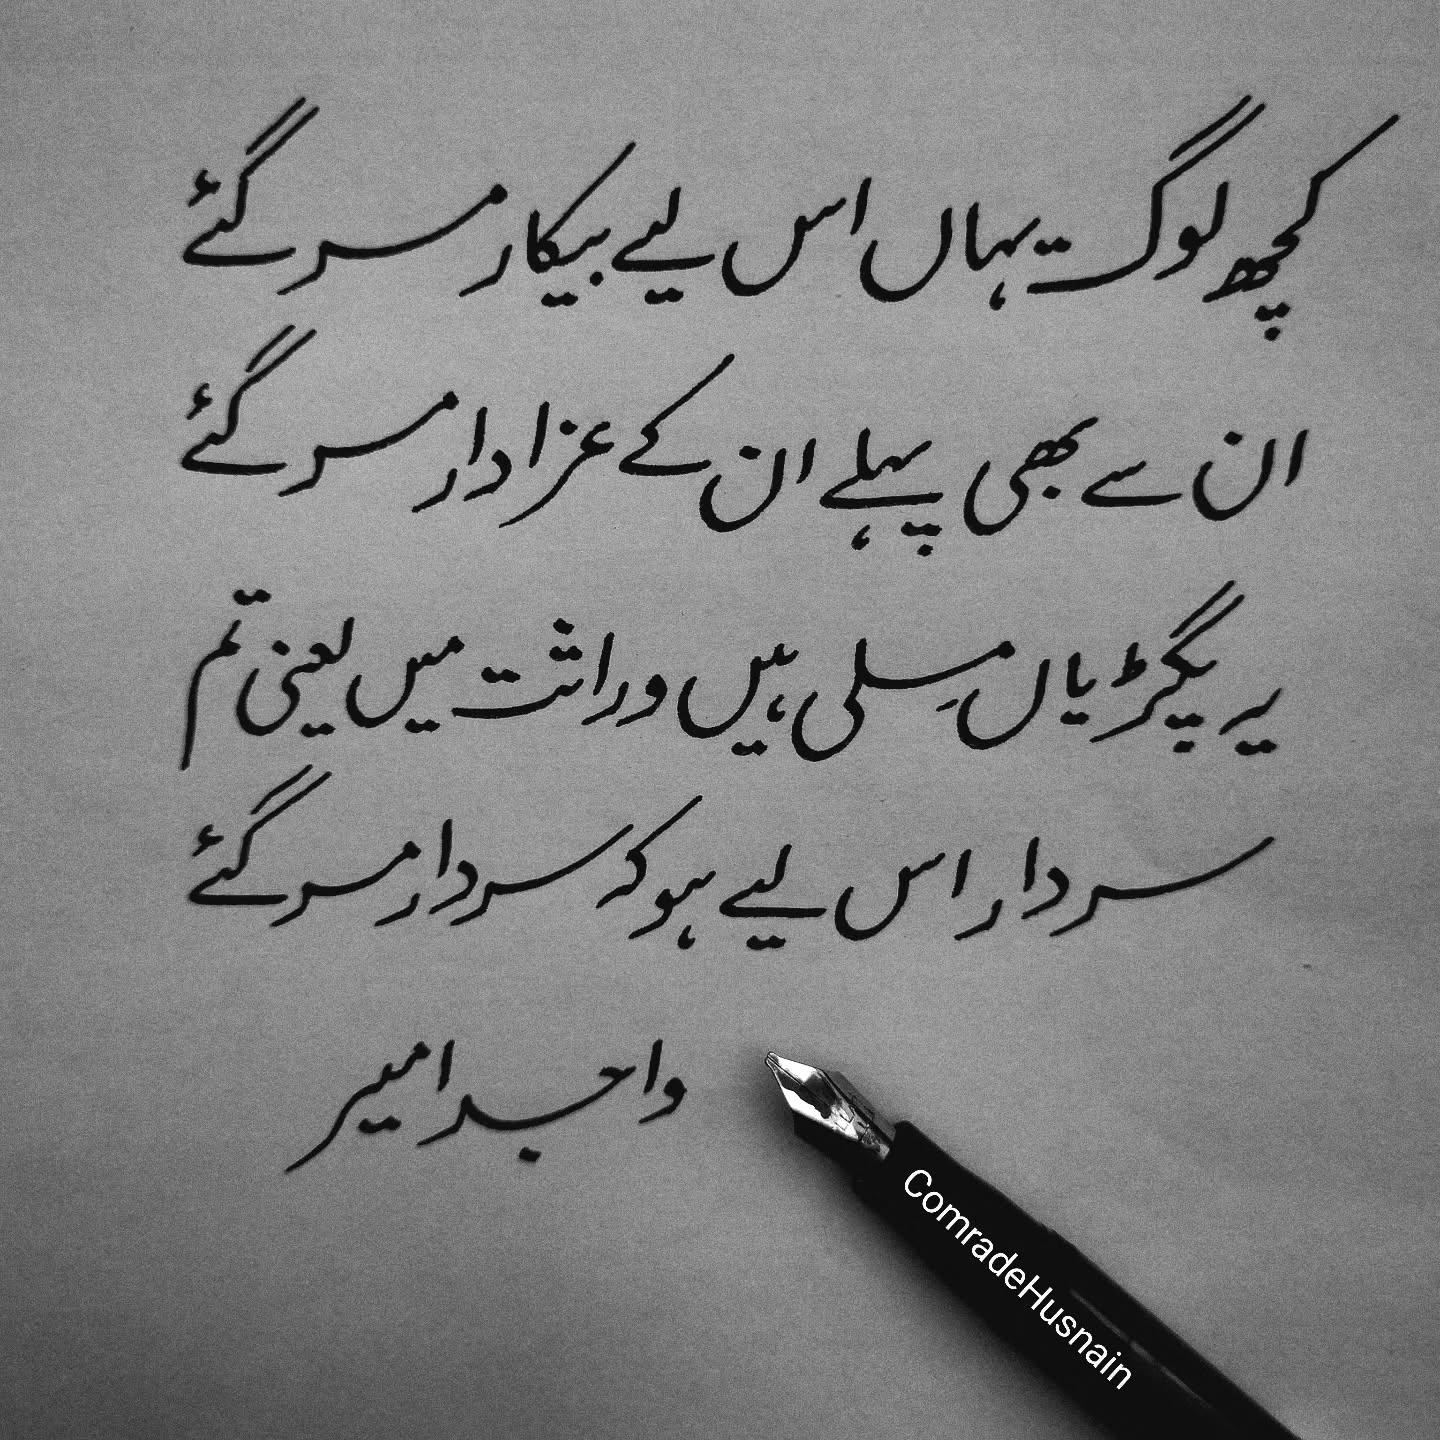 کچھ لوگ یہاں اس لیے بیکار مر گئے
ان سے بھی پہلے ان کے عزادار مر گئے
یہ پگڑیاں مِلی ہیں وراثت میں یعنی تم
سردار اس لیے ہو کہ سردار مر گئے
واجد امیر
ComradeHusnain